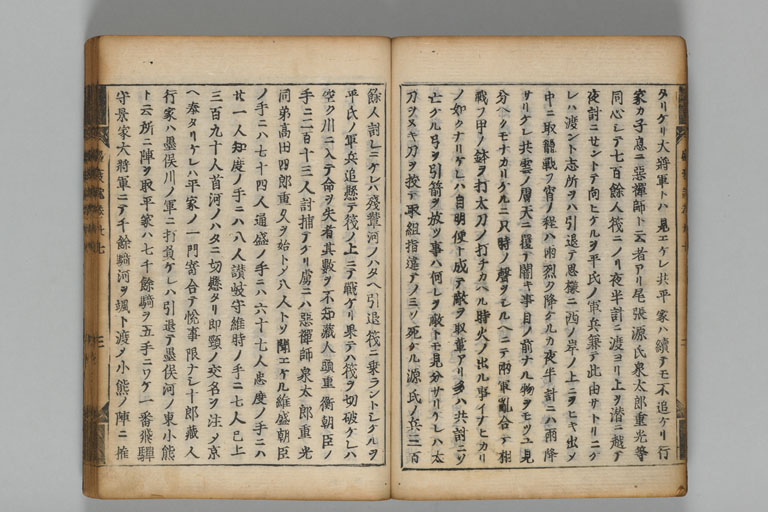 タリケリ大将軍トハ見エケレ共平家ハ續テモ不追ケリ行
家カ子息ニ悪禪師ト云者アリ尾張源氏泉太郎重光等
同心シテ七百餘人筏ニノリ夜半計ニ渡ヨリ上ヲ潜ニ越テ
夜討ニセントテ向ヒケルヲ平氏ノ軍兵兼テ此由サトリニケ
レハ渡シテ志所ヲハ引退テ思様ニ西ノ岸ノ上ニヲヒキ出メ
中ニ取籠戦フ宵ノ程ハ雨烈ク降ケルカ夜半計ニハ雨降
サリケレ共雲ノ膚天ニ覆テ闇キ事目ノ前ナル物ヲモツユ見
分ヘクモナカリケルニ只時ノ聲ヲシルヘニテ兩軍亂合テ相
戦フ甲ノ鉢ヲ打太刀ノ打チカヘル時火ノ出ル事イナヒカリ
ノ如クナリケレハ自明便ト成テ敵ヲ取輩アリ多ハ共討ニソ
亡ケル弓ヲ引箭ヲ放ツ事ハ何レヲ敵トモ見分サリケレハ太
刀ヲヌキ刀ヲ投テ取組指違テノミソ死ケル源氏ノ兵三百
餘人討レニケレハ殘輩河ノハタヘ引退筏ニ乗ラントシケルヲ
平氏ノ軍兵追懸テ筏ノ上ニテ戦ケリ果テハ筏ヲ切破ケレハ
空ク川ニ入テ命ヲ失者其數ヲ不知藏人頭重衡朝臣ノ
手ニ二百十三人討捕テケリ虜ニハ悪禪師泉太郎重光
同弟高田四郎重久ヲ始トメ八人トソ聞エケル維盛朝臣
ノ手ニハ七十四人通盛ノ手ニハ六十七人忠度ノ手ニハ
廿一人知度ノ手ニハ八人讃岐守維時ノ手ニ七人已上
三百九十人首河ノハタニ切懸タリ即頸ノ交名ヲ注メ京
ヘ奉タリケレハ平家ノ一門寄合テ悦事限ナシ十郎藏人
行家ハ墨俣川ノ軍ニ打負ケレハ引退テ墨俣河ノ東小熊
ト云所ニ陣ヲ取平家ハ七千餘騎ヲ五手ニワケ一番飛騨
守景家大将軍ニテ千餘騎河ヲ颯ト渡メ小熊ノ陣ニ推